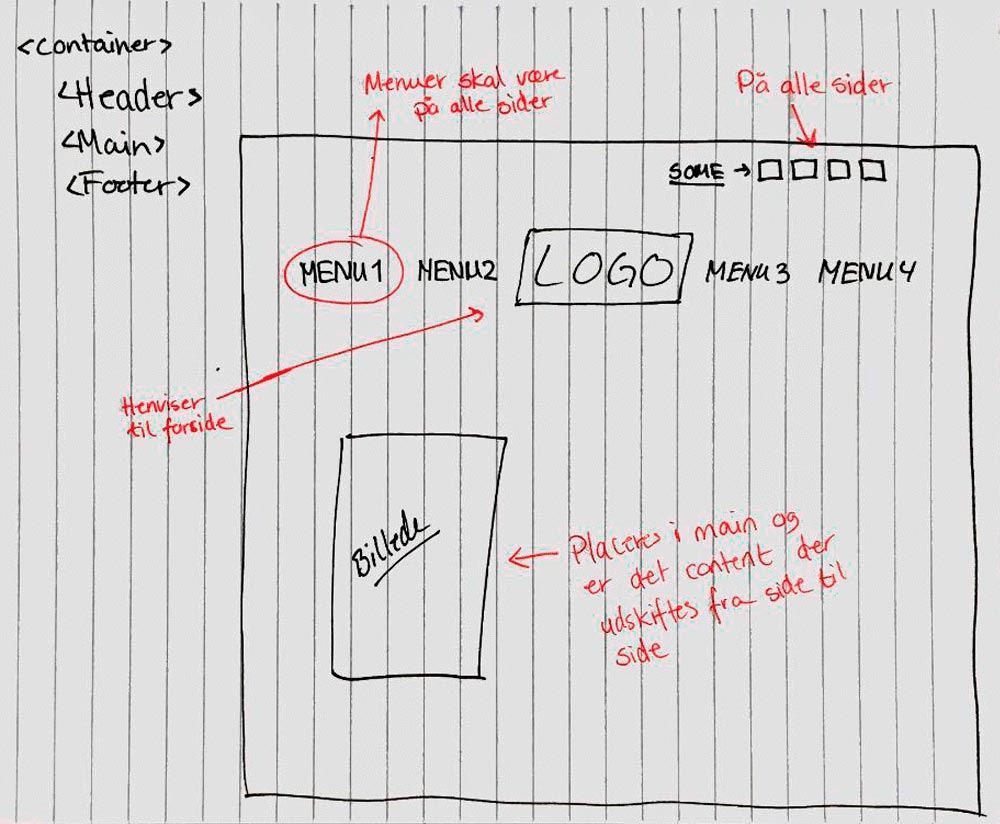 <Container>
<Header>
<Main>
<Footer>
Menuer skal være
på alle sider
På alle sider
SOME →
MENU1 MENU2 LOGO MENU3 MENU4
Henviser
til forside
Billede
Placeres i main og
er det content der
udskiftes fra side til
side